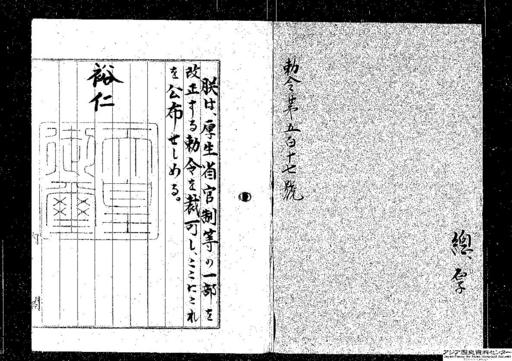 勅令第五百十七號
總、厚
朕は、厚生省官制等の一部を
改正する勅令を裁可し、ここにこれ
を公布せしめる。
裕仁
天皇
御璽
アジア歴史資料センター